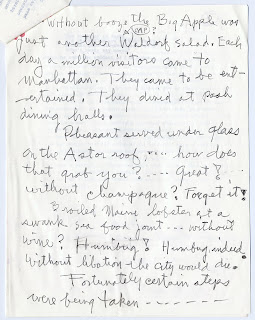 Without booze The Big Apple was
just another Waldorf Salad. Each
day a million visitors came to
Manhattan. They came to be ent-
ertained. They dined at posh
dining halls.
Pheasant served under glass
on the Astor roof.... how does
that grab you?.... Great!...
without champagne? Forget it!
Broiled Maine lobster at a
swank sea food joint... without
wine? Humbug! Humbug, indeed.
Without libation the city would die.
Fortunately certain steps
were being taken - - - - - - -